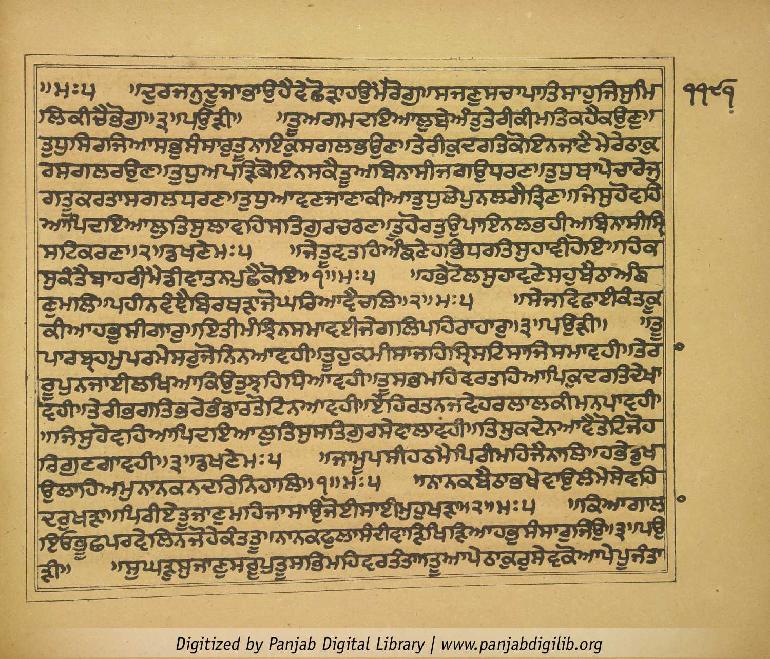 ॥ਮਃ੫ ॥ਦੁਰਜਨੁਦੂਜਾਭਾਉਹੈਵੇਛੋੜਾਹਉਮੈਰੋਗੁ॥ਸਜਣੁਸਚਾਪਾਤਿਸਾਹੁਜਿਸੁਮਿ
ਲਿਕੀਚੈਭੋਗੁ॥੩॥ਪਉੜੀ॥ ॥ਤੂਅਗਮਦਇਆਲੁਬੇਅੰਤੁਤੇਰੀਕੀਮਤਿਕਹੈਕਉਣੁ॥
ਤੁਧੁਸਿਰਜਿਆਸਭੁਸੰਸਾਰੁਤੂਨਾਇਕੁਸਗਲਭਉਣ॥ਤੇਰੀਕੁਦਰਤਿਕੋਇਨਜਾਣੈਮੇਰੇਠਾਕੁ
ਰਸਗਲਰਉਣ॥ਤੁਧੁਅਪੜਿਕੋਇਨਸਕੈਤੂਅਬਿਨਾਸੀਜਗਉਧਰਣ॥ਤੁਧੁਥਾਪੇਚਾਰੇਜੁ
ਗਤੂਕਰਤਾਸਗਲਧਰਣ॥ਤੁਧੁਆਵਣਜਾਣਾਕੀਆਤੁਧੁਲੇਪੁਨਲਗੈਤ੍ਰਿਣ॥ਜਿਸੁਹੋਵਹਿ
ਆਪਿਦਇਆਲੁਤਿਸੁਲਾਵਹਿਸਤਿਗੁਰਚਰਣ॥ਤੂਹੋਰਤੁਉਪਾਇਨਲਭਹੀਅਬਿਨਾਸੀਸ੍ਰਿ
ਸਟਿਕਰਣ॥੨॥ਡਖਣੇਮਃ੫ ॥ਜੇਤੂਵਤਹਿਅੰਙਣੇਹਭਿਧਰਤਿਸੁਹਾਵੀਹੋਇ॥ਹਿਕ
ਸੁਕੰਤੈਬਾਹਰੀਮੈਡੀਵਾਤਨਪੁਛੈਕੋਇ॥੧॥ਮਃ੫ ॥ਹਭੇਟੋਲਸੁਹਾਵਣੇਸਹੁਬੈਠਾਅੰਙ
ਣੁਮਲਿ॥ਪਹੀਨਵੰਞੈਬਿਰਥੜਾਜੋਘਰਿਆਵੈਚਲਿ॥੨॥ਮਃ੫ ॥ਸੇਜਵਿਛਾਈਕੰਤਕੂ
ਕੀਆਹਭੁਸੀਗਾਰੁ॥ਇਤੀਮੰਝਿਨਸਮਾਵਈਜੇਗਲਿਪਹਿਰਾਹਾਰੁ॥੩॥ਪਉੜੀ॥ ॥ਤੂ
ਪਾਰਬ੍ਰਹਮੁਪਰਮੇਸਰੁਜੋਨਿਨਆਵਹੀ॥ਤੂਹੁਕਮੀਸਾਜਹਿਸ੍ਰਿਸਟਿਸਾਜਿਸਮਾਵਹੀ॥ਤੇਰਾ
ਰੂਪੁਨਜਾਈਲਖਿਆਕਿਉਤੁਝਹਿਧਿਆਵਹੀ॥ਤੂਸਭਮਹਿਵਰਤਹਿਆਪਿਕੁਦਰਤਿਦੇਖਾ
ਵਹੀ॥ਤੇਰੀਭਗਤਿਭਰੇਭੰਡਾਰਤੋਟਿਨਆਵਹੀ॥ਏਹਿਰਤਨਜਵੇਹਰਲਾਲਕੀਮਨਪਾਵਹੀ
॥ਜਿਸੁਹੋਵਹਿਆਪਿਦਇਆਲੁਤਿਸੁਸਤਿਗੁਰਸੇਵਾਲਾਵਹੀ॥ਤਿਸੁਕਦੇਨਆਵੈਤੋਟਿਜੋਹ
ਰਿਗੁਣਗਾਵਹੀ॥੩॥ਡਖਣੇਮਃ੫ ॥ਜਾਮੂਪਸੀਹਠਮੈਪਿਰੀਮਹਿਜੈਨਾਲਿ॥ਹਭੇਡੁਖ
ਉਲਾਹਿਅਮੁਨਾਨਕਨਦਰਿਨਿਹਾਲਿ॥੧॥ਮਃ੫ ॥ਨਾਨਕਬੈਠਾਭਖੇਵਾਉਲੰਮੇਸੇਵਹਿ
ਦਰੁਖੜਾ॥ਪਿਰੀਏਤੂਜਾਣੁਮਹਿਜਾਸਾਉਜੋਈਸਾਈਮੁਹੁਖੜਾ॥੨॥ਮਃ੫ ॥ਕਿਆਗਾਲ
ਇਓਭੂਛਪਰਵੇਲਿਨਜੋਹੇਕੰਤਤੂ॥ਨਾਨਕਫੁਲਾਸੰਦੀਵਾੜਿਖਿੜਿਆਹਭੁਸੰਸਾਰੁਜਿਉ॥੩॥ਪਉ
ੜੀ॥ ॥ਸੁਘੜੁਸੁਜਾਣੁਸਰੂਪੁਤੂਸਭਮਹਿਵਰਤੰਤਾ॥ਤੂਆਪੇਠਾਕੁਰੁਸੇਵਕੋਆਪੇਪੂਜੰਤਾ
੧੧੯੧
Digitized by Panjab Digital Library | www.panjabdigilib.org